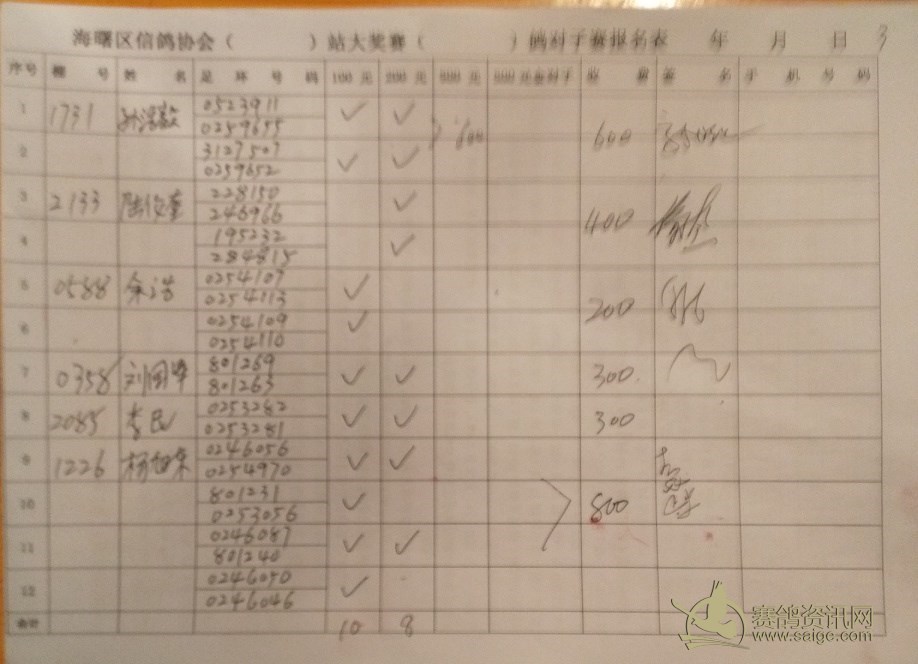 海曙区信鸽协会（ ）站大奖赛（ ）鸽对手赛报名表 年 月 日 3
序号 棚号 姓名 足环号码 100元 200元 签名 手机号码
1 1731 0523911 ✓ ✓ 600
0259655
2 3127507 ✓ ✓
0259652
3 2133 228150 ✓ 400
246966
4 195232 ✓
284815
5 0588 余浩 0254107 ✓ 200
0254113
6 0254109 ✓
0254110
7 0358 刘国华 801269 ✓ ✓ 300
801263
8 2085 李民 0253282 ✓ ✓ 300
0253281
9 1226 杨旭东 0246056 ✓ ✓
0254970
10 801231 ✓ 800
0253056
11 0246087 ✓ ✓
801240
12 0246050 ✓
0246046
合计 10 8
赛鸽资讯网
www.saige.com